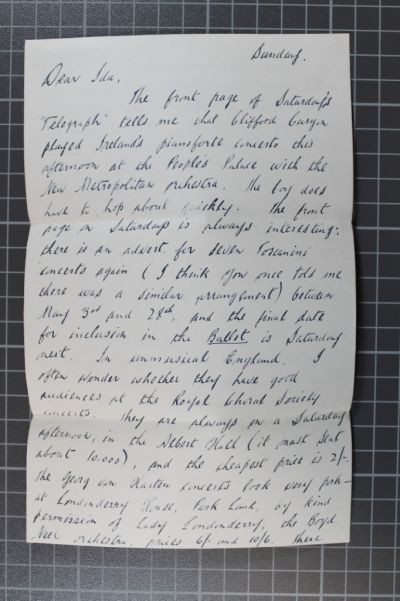 Sunday.
Dear Ida,
The front page of Saturday's
"Telegraph" tells me that Clifford Curzon
played Ireland's pianoforte concerto this
afternoon at the People's Palace with the
New Metropolitan orchestra. The boy does
have to hop about quickly. The front
page on Saturdays is always interesting;
there is an advert. for seven Toscanini
concerts again (I think you once told me
there was a similar arrangement) between
May 3rd and 28th, and the final date
for inclusion in the Ballot is Saturday
next. In unmusical England. I
often wonder whether they have good
audiences at the Royal Choral Society
concerts. They are always on a Saturday
afternoon, in the Albert Hall (it must seat
about 10,000), and the cheapest price is 2/-.
The Georg van Harten concerts look very posh –
at Londonderry House, Park Lane, by kind
permission of Lady Londonderry, the Boyd
Neel orchestra, prices 6/- and 10/6. There